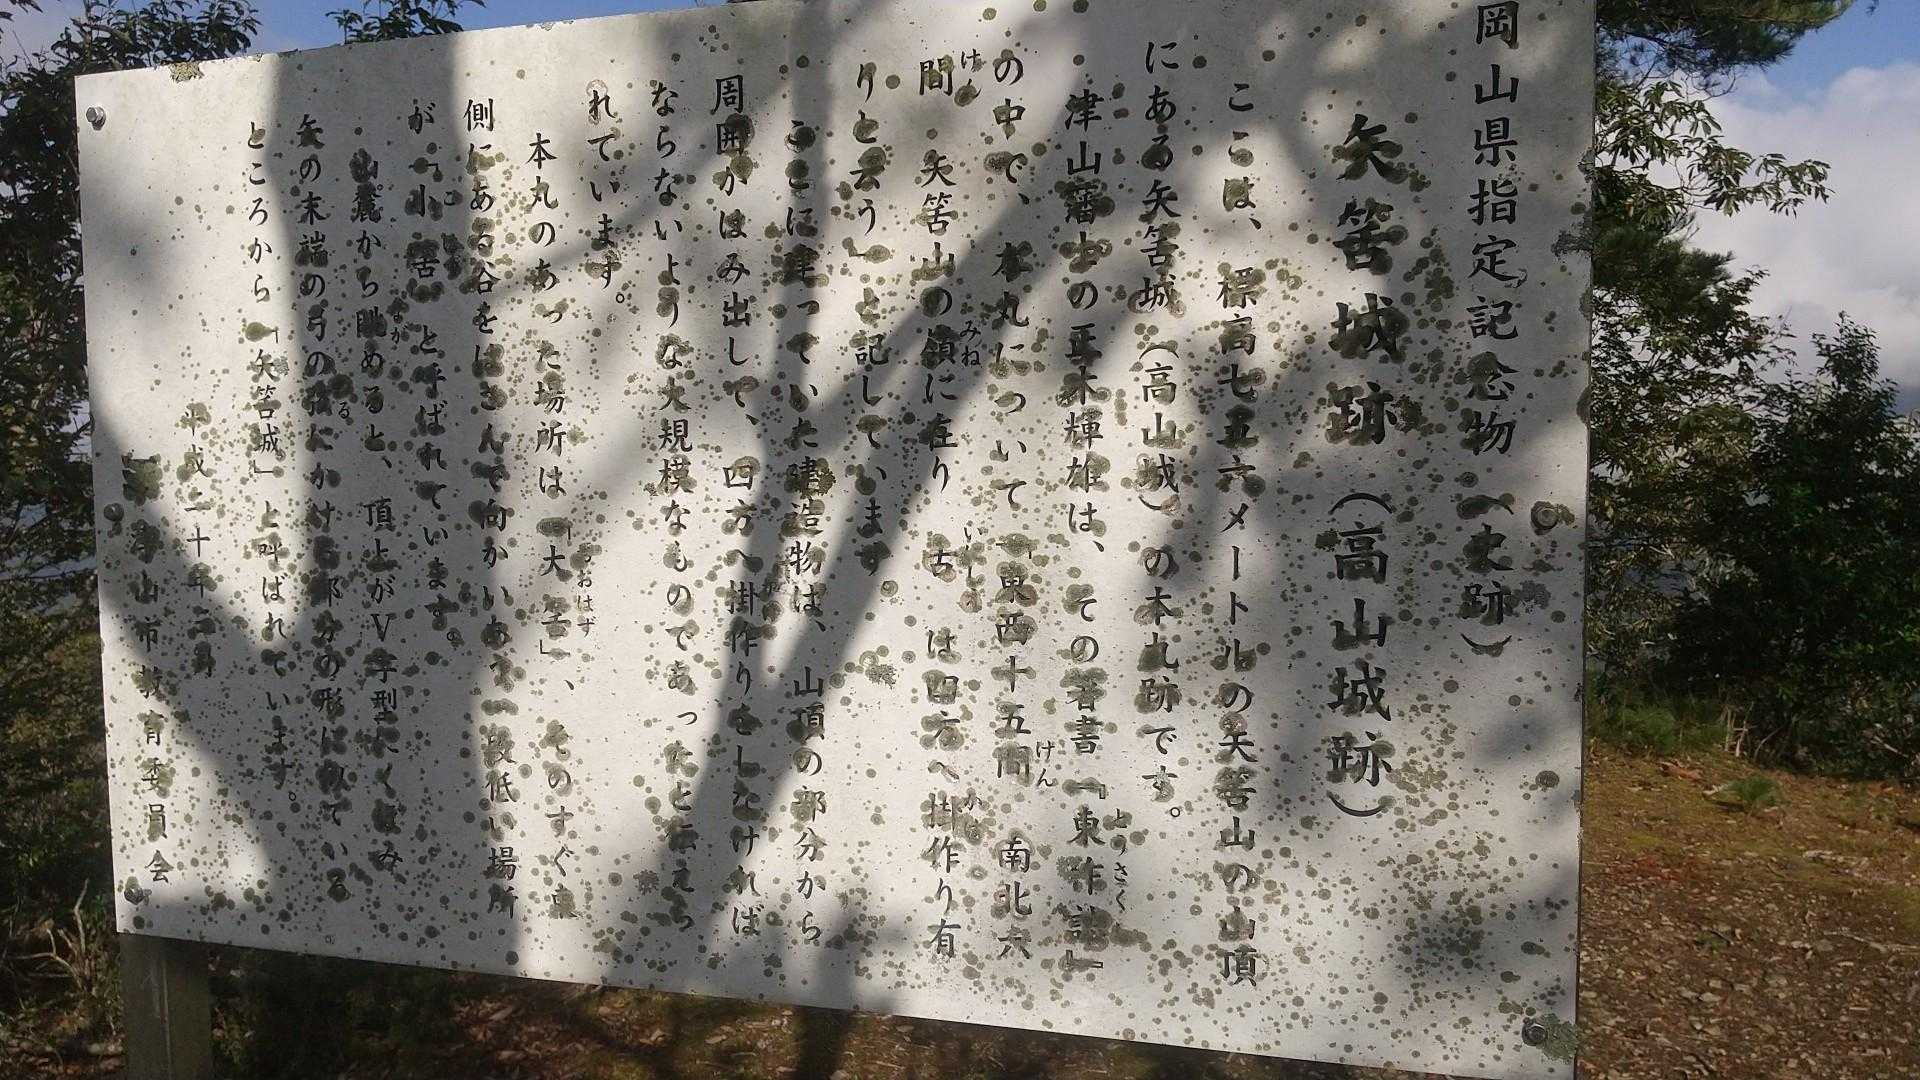 岡山県指定記念物（史跡）
矢筈城跡（高山城跡）
ここは、標高七五六メートルの矢筈山の山頂
にある矢筈城（高山城）の本丸跡です。
津山藩士の正木輝雄は、その著書『東作誌』
とうさく
の中で、本丸について「東西十五間 南北六
けん
間 矢筈山の嶺に在り 古 は四方へ掛作り有
けん みね いにしへ かけ
りと云う」と記しています。
ここに建っていた建造物は、山頂の部分から
周囲がはみ出して、四方へ掛作りをしなければ
ならないような大規模なものであったと伝えら
れています。
本丸のあった場所は「大筈」、そのすぐ東
おおはず
側にある谷をはさんで向かいあう一段低い場所
が「小筈」と呼ばれています。
山麓から眺めると、頂上がV字型にくぼみ
なが
矢の末端の弓の弦にかける部分の形に似ている
る
ところから「矢筈城」と呼ばれています。
平成二十年二月
津山市教育委員会